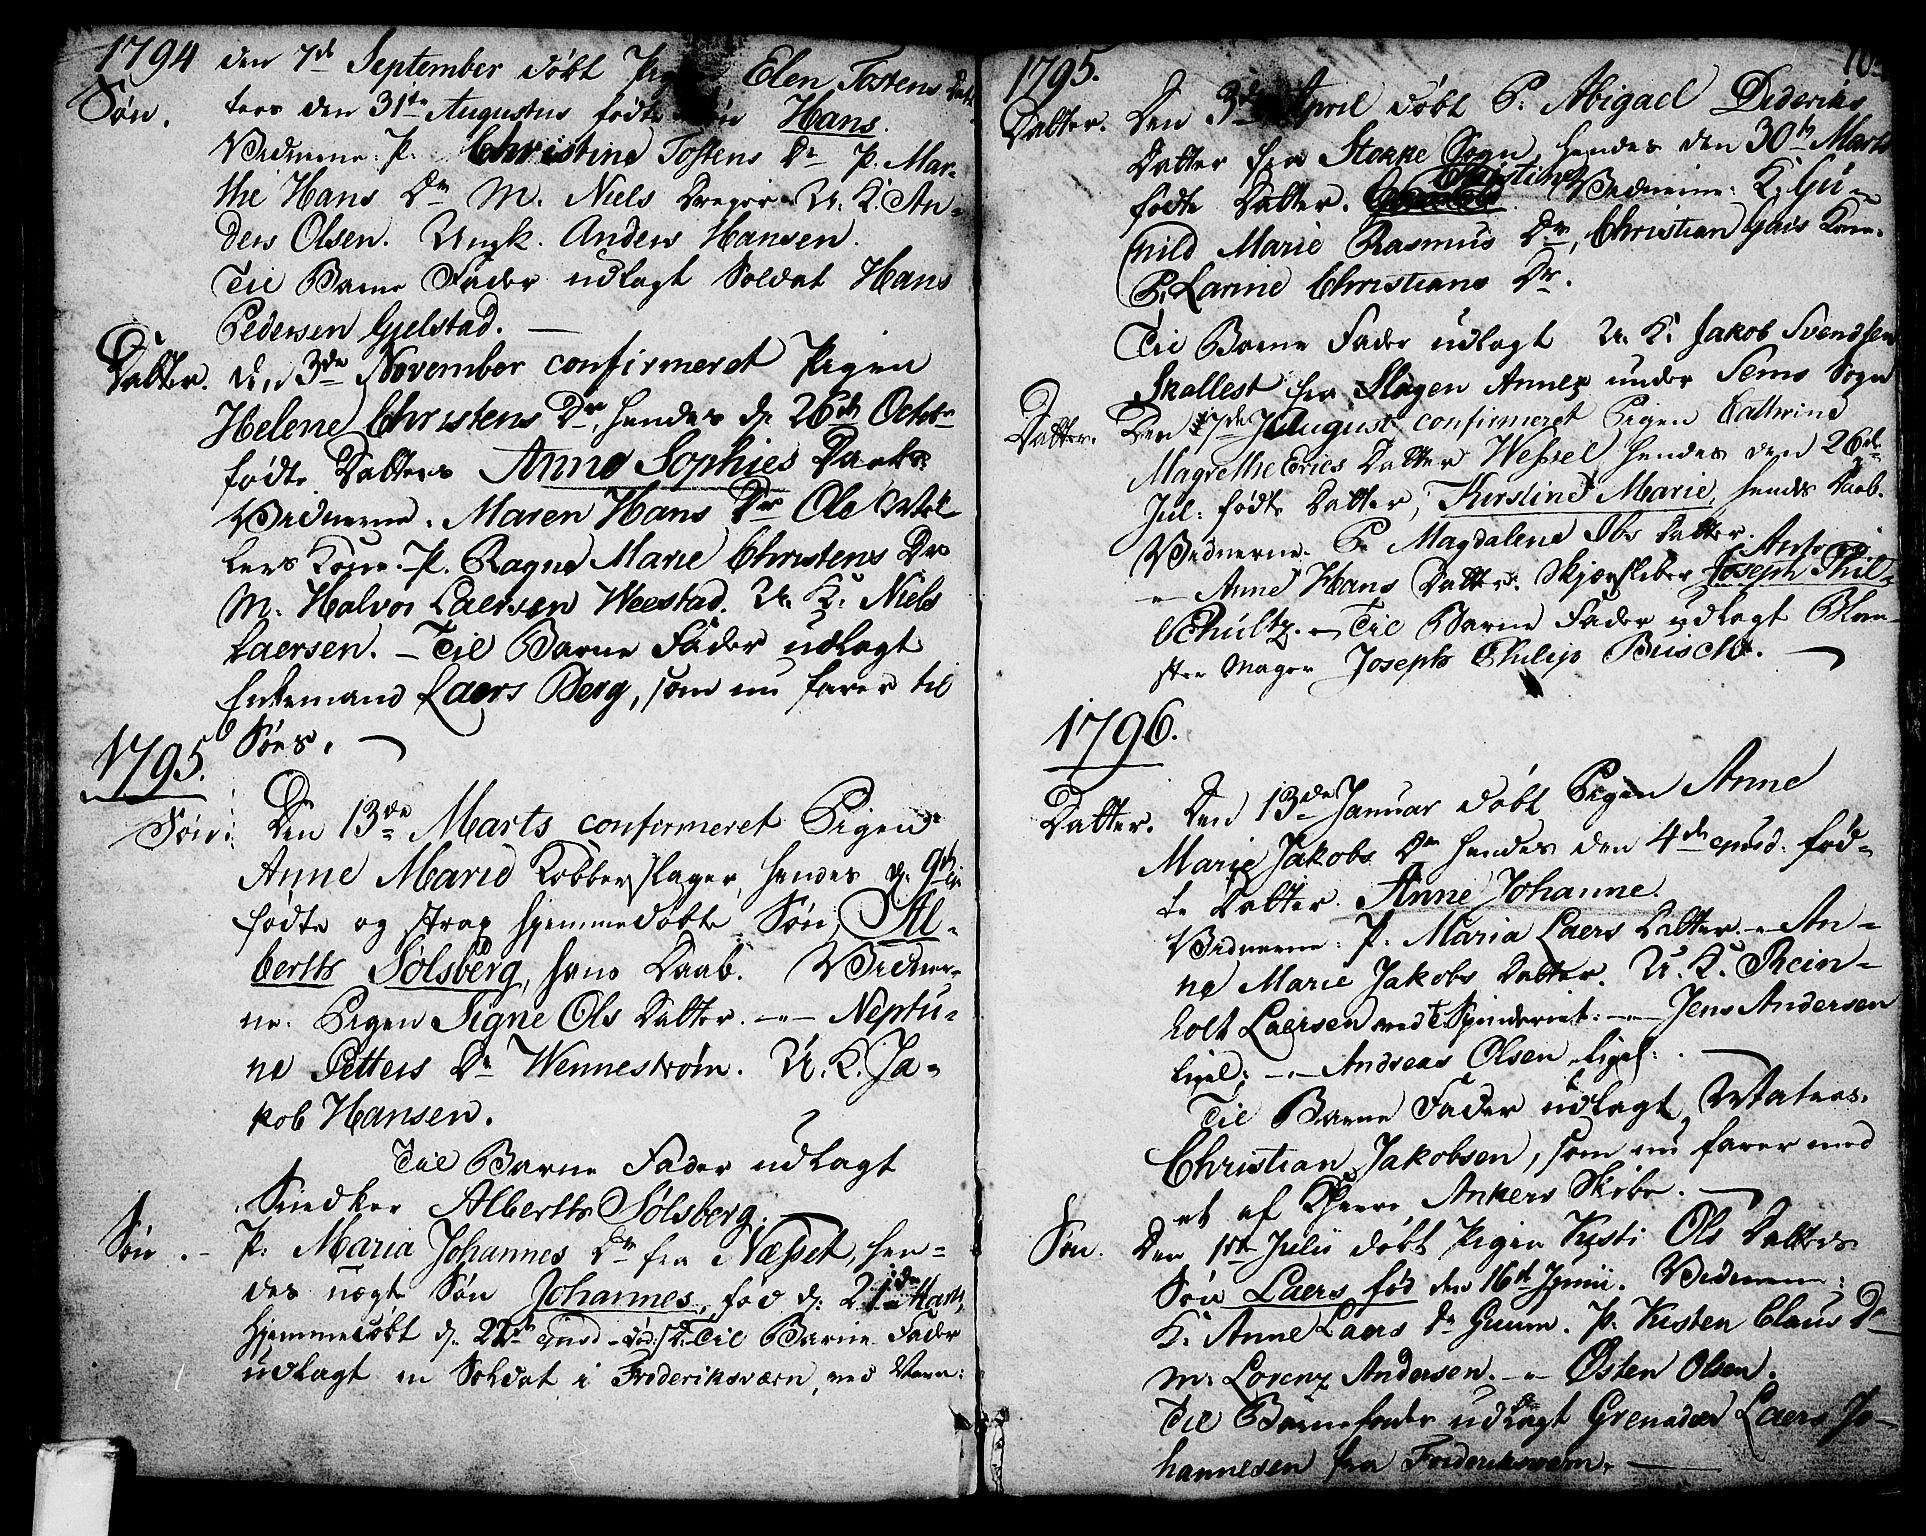 1794 den 7de September döbt Elen Tostens Dat-
Søn. ters den 31te Augustus födte Søn Hans.
Vidnerne: P. Christine Tostens Dr P. Mar-
the Hans Dr M. Niels Dreyer U. K. An-
ders Olsen. Ungk. Anders Hansen.
Til Barne Fader udlagt Soldat Hans
Pedersen Gjelstad. —
Datter. d. 3de November confirmeret Pigen
Helene Christens Dr, hendes d. 26de Octobr
födte Datters Anne Sophies Daab.
Vidnerne. Maren Hans Dr Ole Möl-
lers Kone. P. Ragne Marie Christens Dr
M. Halvor Laersen Weestad. U. K. Niels
Laersen. — Til Barne Fader udlagt
Enkemand Laers Berg, som nu farer til
Søes. —
1795.
Søn. Den 13de Marts confirmeret Pigen
Anne Marie Kobberslager, hendes d. 9de
födte og strax hjemmedøbte Søn, Al-
berth Sölsberg, hans Daab. Vidner-
ne. Pigen Signe Ols Datter. — Neptu-
ne Petters Dr Wenneström. U. K. Ja-
kob Hansen.
Til Barne Fader udlagt
Snedker Alberth Sölsberg.
Søn. P. Maria Johannes Dr fra Næsset, hen-
des uægte Søn Johannes, fød d. 21de Marts,
hjemmedöbt d. 22de Til Barne Fader
udlagt en Soldat i Frideriksværn, ved Navn:
1795.
Datter. Den 3de April döbt P. Abigael Dideriks
Datter fra Stokke Sogn, hendes den 30te Marts
födte Datter. Kirstine Vidnerne: K. Gu-
nild Marie Rasmus Dr, Christian Gais Kone.
P. Larine Christians Dr.
Til Barne Fader udlagt U. K. Jakob Svendsen
Skallest fra Slagen Annex under Sems Sogn
Datter. Den 7de August confirmeret Pigen Cathrine
Magrethe Erics Datter Wessel hendes den 26de
Jul: födte Datter, Kirstine Marie, hendes Daab.
Vidnerne. P. Magdalene Ibs Datter.
— Anne Hans Datter. Skjærsliber Anton Joseph Phil-
Schultz. — Til Barne Fader udlagt Blom-
ster Mager Joseph Philip Buisch. —
1796.
Datter. Den 13de Januar döbt Pigen Anne
Marie Jakobs Dr hendes den 4de ejusd. föd-
te Datter. Anne Johanne.
Vidnerne: P. Maria Laers Datter. — An-
ne Marie Jakobs Datter. U. K. Rein-
holt Laersen ved Spinderiet. — Jens Andersen
ligel: — Andreas Olsen ligel: —
Til Barne Fader udlagt Matros.
Christian Jakobsen, som nu farer med
et af Herr Ankers Skibe. —
Søn. Den 1ste Julii döbt Pigen Kisti Ols Datters
Søn Laers fød den 16de Junii. Vidnerne:
K. Anne Laers Dr Guum. P. Kisten Claus Dr
M. Lorenz Andersen. — Østen Olsen.
Til Barnefader udlagt Grenader Laers Jo-
hannesen fra Frideriksværn. —